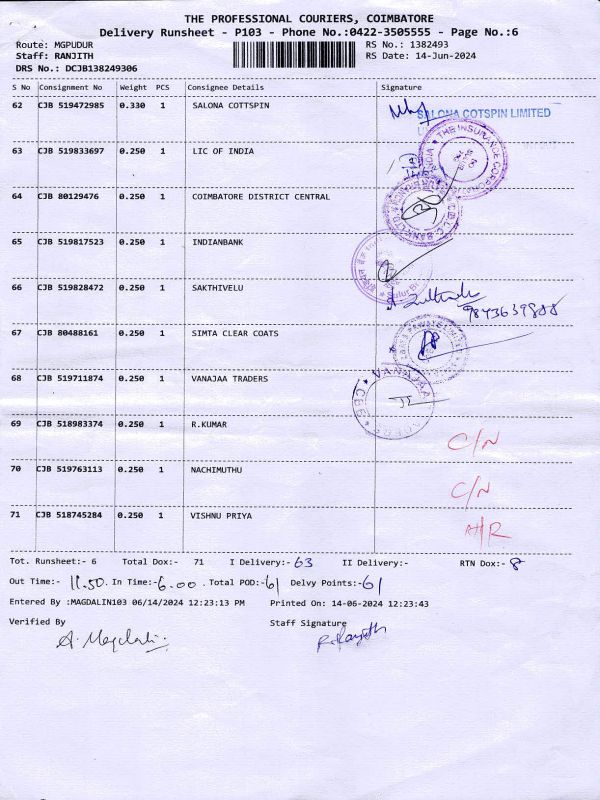 THE PROFESSIONAL COURIERS, COIMBATORE
Delivery Runsheet - P103 - Phone No.:0422-3505555 - Page No.:6
Route: MGPUDUR RS No.: 1382493
Staff: RANJITH RS Date: 14-Jun-2024
DRS No.: DCJB138249306
S No Consignment No Weight PCS Consignee Details Signature
62 CJB 519472985 0.330 1 SALONA COTTSPIN
SALONA COTSPIN LIMITED
63 CJB 519833697 0.250 1 LIC OF INDIA
THE INSURANCE CORPORATION
64 CJB 80129476 0.250 1 COIMBATORE DISTRICT CENTRAL
65 CJB 519817523 0.250 1 INDIANBANK
66 CJB 519828472 0.250 1 SAKTHIVELU
9843639888
67 CJB 80488161 0.250 1 SIMTA CLEAR COATS
68 CJB 519711874 0.250 1 VANAJAA TRADERS
VANAJAA
69 CJB 518983374 0.250 1 R.KUMAR C/N
70 CJB 519763113 0.250 1 NACHIMUTHU C/N
71 CJB 518745284 0.250 1 VISHNU PRIYA
Tot. Runsheet:- 6 Total Dox:- 71 I Delivery:- 63 II Delivery:- RTN Dox:- 8
Out Time:- 11.50 In Time:- 6.00 . Total POD:- 61 Delvy Points:- 61
Entered By :MAGDALIN103 06/14/2024 12:23:13 PM Printed On: 14-06-2024 12:23:43
Verified By Staff Signature
A. Magdali R. Ranjith